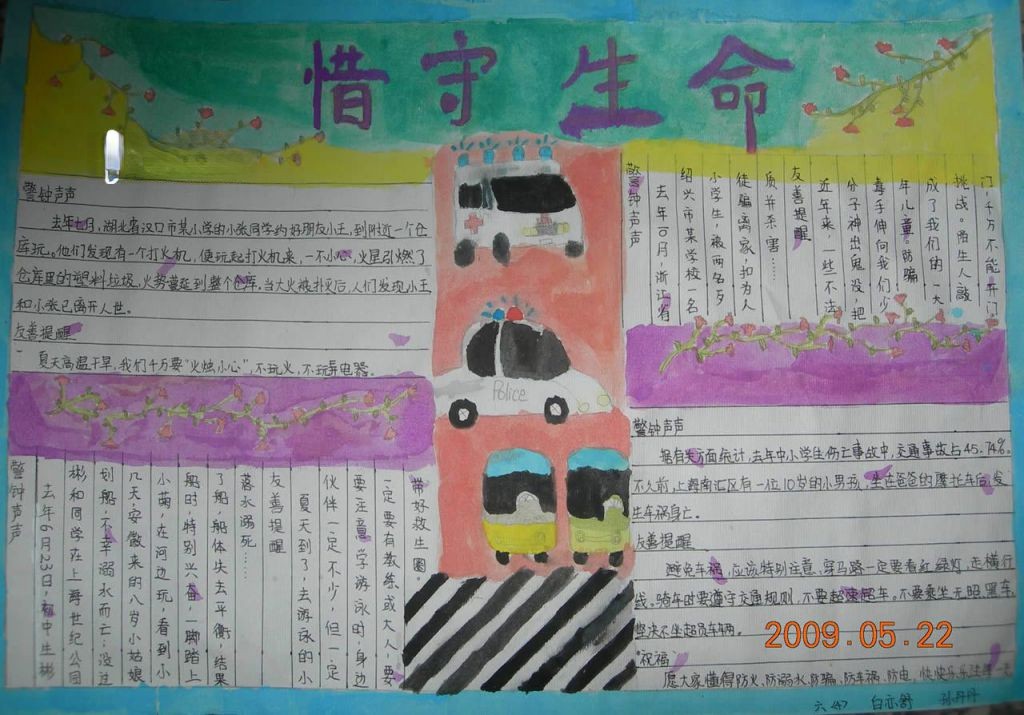 惜守生命
警钟声声
去年七月,湖北省汉口市某小学的小张同学约好朋友小王,到附近一个仓
库玩。他们发现有一个打火机,便玩起打火机来,一不小心,火星引燃了
仓库里的塑料垃圾,火势蔓延到整个仓库。当大火被扑灭后,人们发现小王
和小张已离开人世。
友善提醒
夏天高温干旱,我们千万要“火烛小心”,不玩火,不玩弄电器。
警钟声声
去年6月23日,初中生彬
彬和同学在上海世纪公园
划船,不幸溺水而亡;没过
几天,安徽来的八岁小姑娘
小菊,在河边玩,看到小
船时,特别兴奋,一脚踏上
了船,船体失去平衡,结果
落水溺死……
友善提醒
夏天到了,去游泳的小
伙伴一定不少,但一定
要注意:学游泳时,身边
一定要有教练或大人,要
带好救生圈。
Police
警钟声声
去年10月,浙江省
绍兴市某学校一名
小学生,被两名歹
徒骗离家,扣为人
质并杀害……
友善提醒
近年来,一些不法
分子神出鬼没,把
毒手伸向我们少
年儿童。防骗
成了我们的一大
挑战。陌生人敲
门,千万不能开门
警钟声声
据有关方面统计,去年中小学生伤亡事故中,交通事故占45.74%。
不久前,上海南汇区有一位10岁的小男孩,坐在爸爸的摩托车后,发
生车祸身亡。
友善提醒
避免车祸,应该特别注意、穿马路一定要看红绿灯,走横行
线。骑车时要遵守交通规则,不要超速超车。不要乘坐无照黑车,
坚决不坐超员车辆。
“祝福”
愿大家懂得防火、防溺水、防骗、防车祸、防电,快快乐乐过每一天
2009.05.22
六〈4〉 白亦舒 孙丹丹